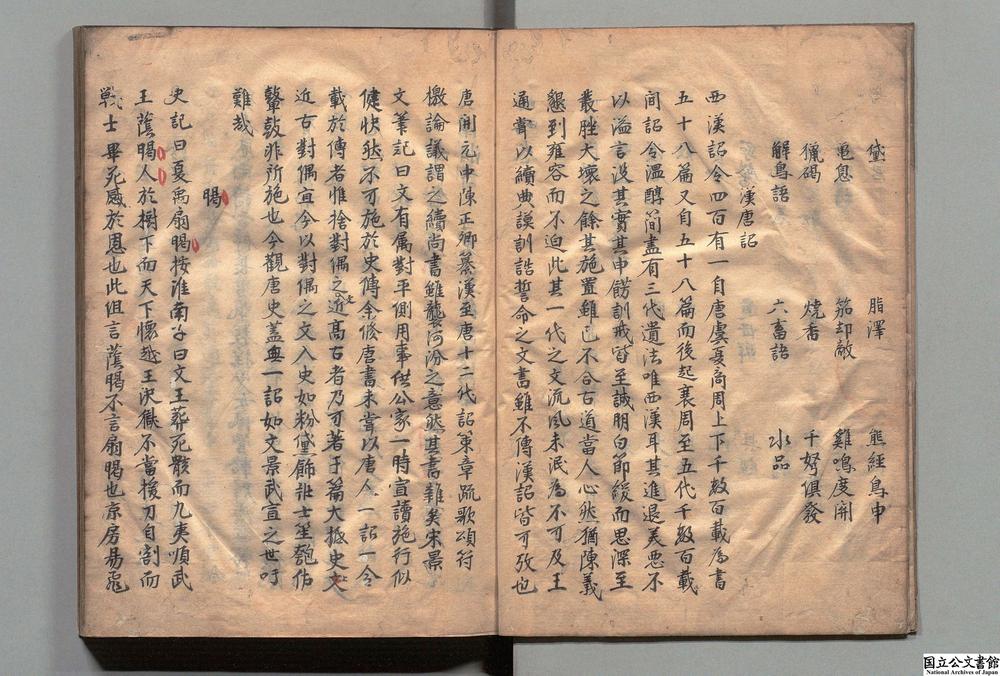 黛墨　脂澤　熊經鳥申
龜息　笳却敵　雞鳴度關
獵碣　燒香　千弩俱發
解鳥語　六畜語　水品
漢唐詔
西漢詔令四百有一自唐虞夏商周上下千數百載為書
五十八篇又自五十八篇而後起衰周至五代千餘百載
間詔令溫醇簡盡有三代遺法唯西漢耳其進退美惡不
以溢言沒其實其申飭訓戒皆至誠明白節緩而思深至
叢脞大壞之餘其施置雖已不合古道當人心然猶陳義
懇到雍容而不迫此其一代之文流風未泯為不可及王
通嘗以續典謨訓誥誓命之文書雖不傳漢詔皆可攷也
唐開元中陳正卿纂漢至唐十二代詔策章疏歌頌符
檄論議謂之續尚書雖襲河汾之意然其書難矣宋景
文筆記曰文有属對平側用事供公家一時宣讀施行似
健快然不可施於史傳余修唐書未嘗以唐人一詔一令
載於傳者惟捨對偶之文近髙古者乃可著于篇大抵史文
近古對偶宜今以對偶之文入史如粉黛飾壯士笙匏佐
鼙鼓非所施也今觀唐史盖無一詔如文景武宣之世吁
難哉
暍
史記曰夏禹扇暍按淮南子曰文王葬死骸而九夷順武
王蔭暍人於樹下而天下懷越王決獄不當援刀自割而
戰士畢死感於恩也此但言蔭暍不言扇暍也京房易飛
国立公文書館
National Archives of Japan